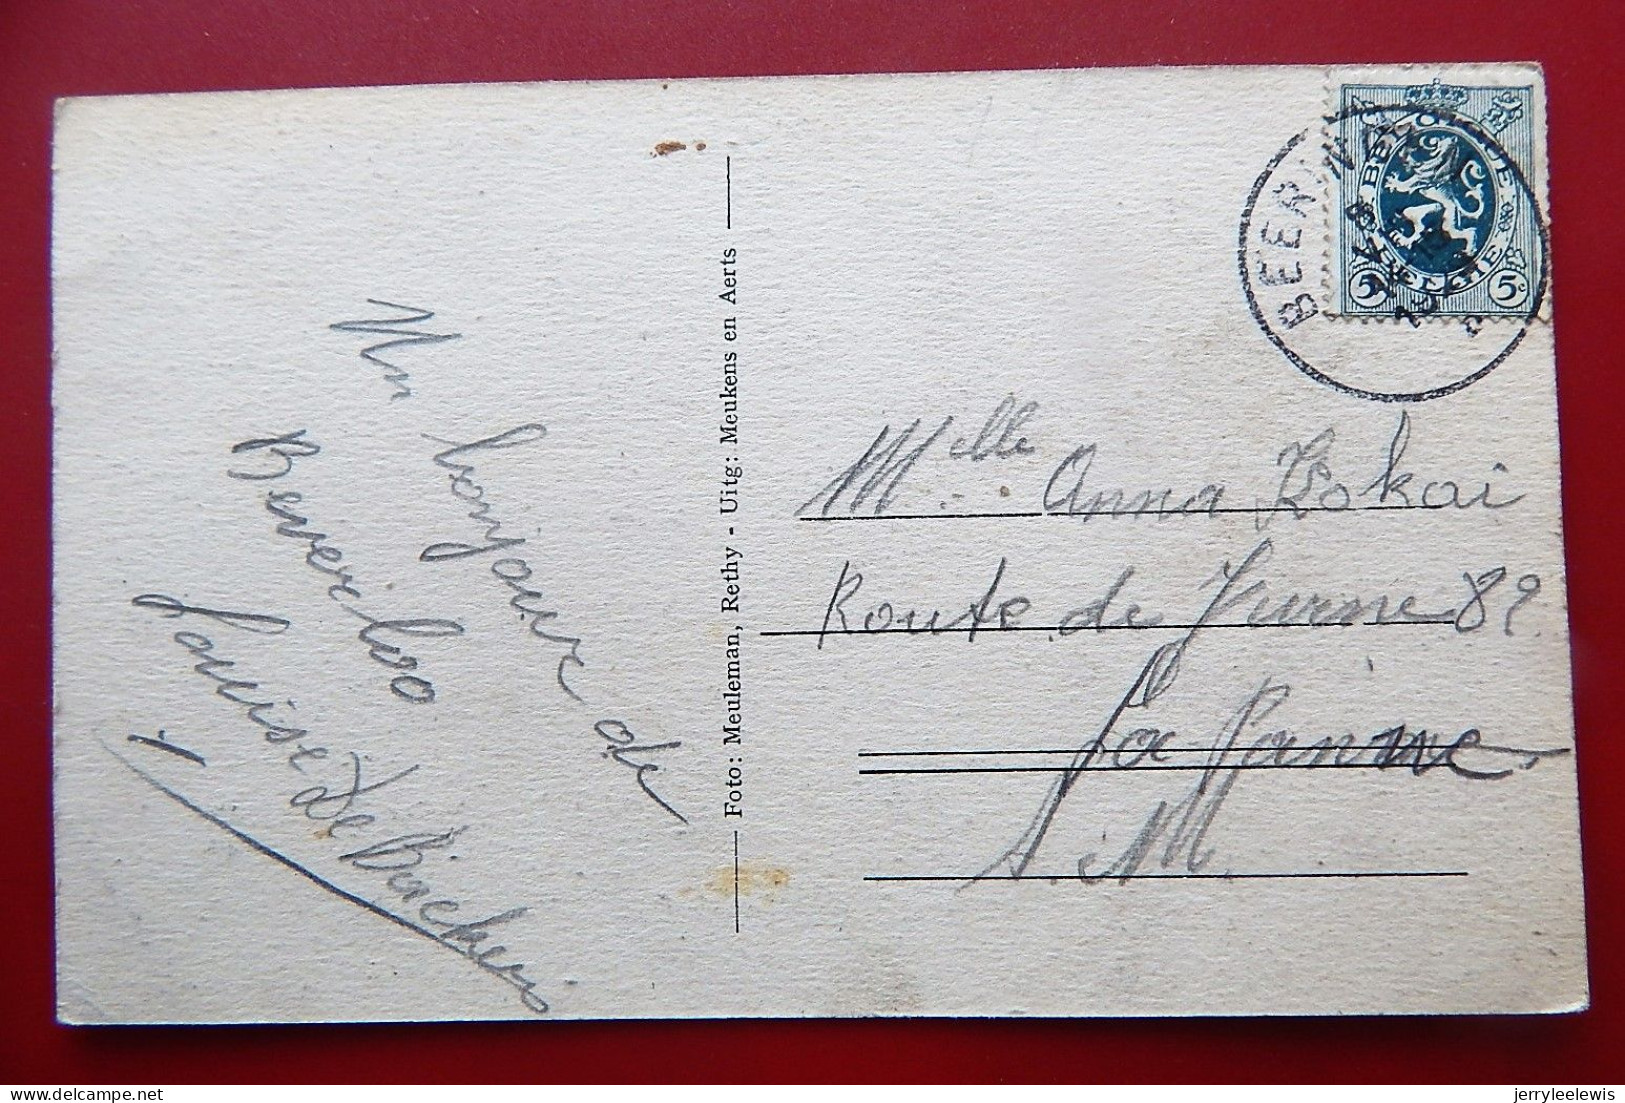 Un
bonjour de
Beverloo
Louise De Bincken
Foto: Meuleman, Rethy - Uitg: Meukens en Aerts
BELGIQUE
BELGIE
5c
5c
BEER
Melle Anna Kokai
Route de Furne 89.
La Panne.
s. M.
jerryleelewis
delcampe.net